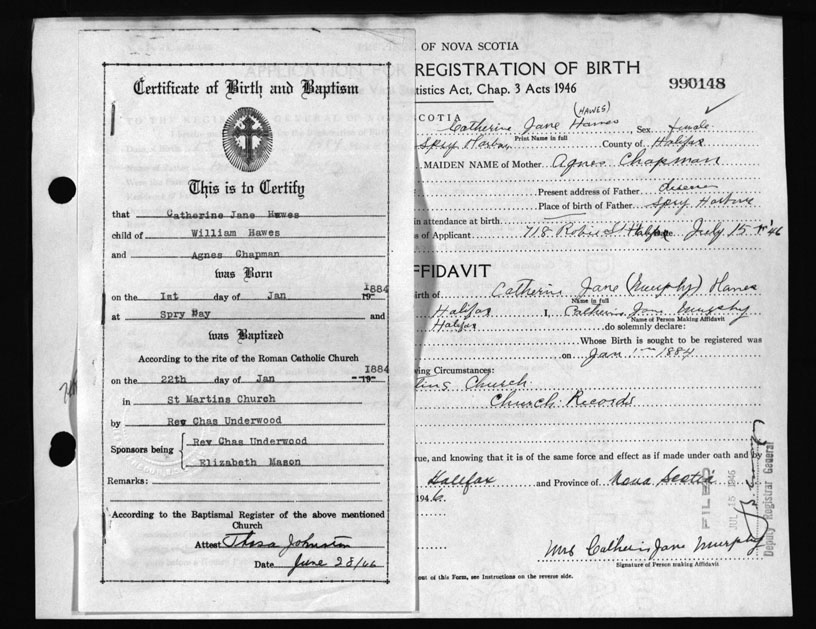 Certificate of Birth and Baptism
This is to Certify
that Catherine Jane Hawes
child of William Hawes
and Agnes Chapman
was Born
on the 1st day of Jan 1884 19
at Spry Bay and
was Baptized
According to the rite of the Roman Catholic Church
on the 22th day of Jan 1884 19
in St Martins Church
by Rev Chas Underwood
Sponsors being Rev Chas Underwood
Elizabeth Mason
Remarks:
According to the Baptismal Register of the above mentioned
Church
Attest Johnston
Date June 28/46
OF NOVA SCOTIA
REGISTRATION OF BIRTH
istics Act, Chap. 3 Acts 1946
990148
SCOTIA
(HAWES)
Catherine Jane Hawes Sex female
Print Name in full
Spry Harbor County of Halifax
MAIDEN NAME of Mother Agnes Chapman
Present address of Father
Place of birth of Father Spry Harbour
in attendance at birth
s of Applicant 718 Robie St Halifax July 15 '46
FFIDAVIT
irth of Catherine Jane (Murphy) Hawes
Name in full
Halifax I, Catherine Jane Murphy
Name of Person Making Affidavit
Halifax do solemnly declare:
Whose Birth is sought to be registered was
on Jan 1 1884
wing Circumstances:
tins Church
Church Records
rue, and knowing that it is of the same force and effect as if made under oath and by
Halifax and Province of Nova Scotia
194 6.
FILED
JUL 15 1946
Deputy Registrar General
Mrs Catherine Jane Murphy
Signature of Person making Affidavit
out of this Form, see Instructions on the reverse side.